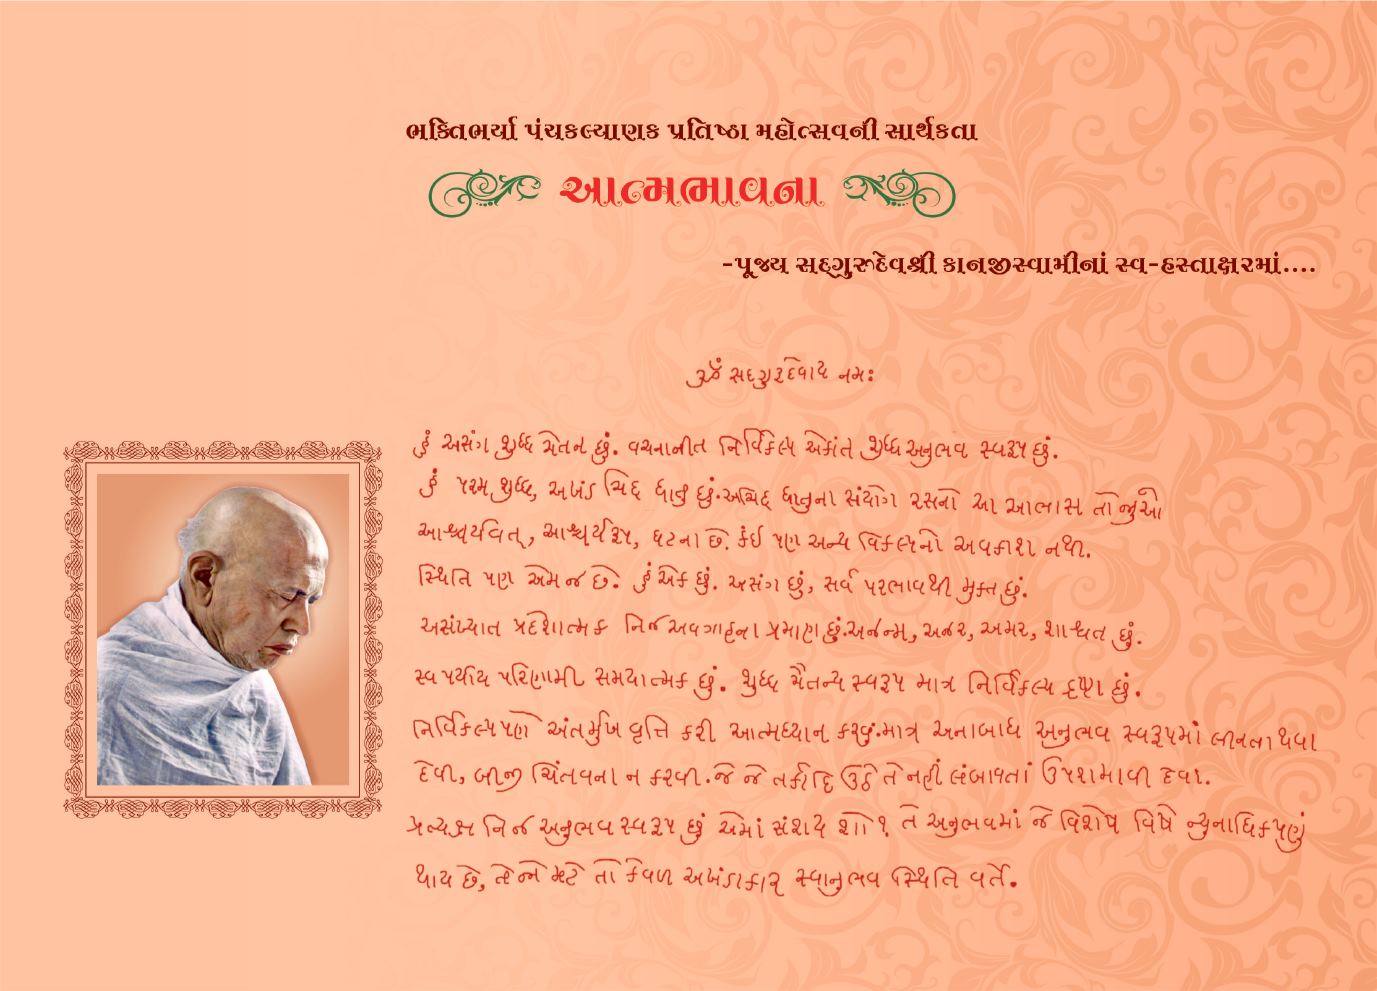 ભક્તિભર્યા પંચકલ્યાણક પ્રતિષ્ઠા મહોત્સવની સાર્થકતા
આત્મભાવના
-પૂજ્ય સદ્‌ગુરુદેવશ્રી કાનજીસ્વામીનાં સ્વ-હસ્તાક્ષરમાં....
ૐ સદ્ગુરુદેવાય નમઃ
હું અસંગ શુદ્ધ ચેતન છું. વચનાતીત નિર્વિકલ્પ એકાંત શુદ્ધ અનુભવ સ્વરૂપ છું.
હું પરમ શુદ્ધ, અખંડ ચિદ્ ધાતુ છું. અચિદ્ ધાતુના સંયોગ રસનો આ આભાસ તો જુઓ
આશ્ચર્યવત્, આશ્ચર્યરૂપ, ઘટના છે. કંઈ પણ અન્ય વિકલ્પનો અવકાશ નથી.
સ્થિતિ પણ એમ જ છે. હું એક છું. અસંગ છું, સર્વ પરભાવથી મુક્ત છું.
અસંખ્યાત પ્રદેશાત્મક નિજ અવગાહના પ્રમાણ છું. અજન્મ, અજર, અમર, શાશ્વત છું.
સ્વ પર્યાય પરિણામી સમયાત્મક છું. શુદ્ધ ચૈતન્ય સ્વરૂપ માત્ર નિર્વિકલ્પ દૃષ્ટા છું.
નિર્વિકલ્પપણે અંતર્મુખ વૃત્તિ કરી આત્મધ્યાન કરવું. માત્ર અનાબાધ અનુભવ સ્વરૂપમાં લીનતા થવા
દેવી, બીજી ચિંતવના ન કરવી. જે જે તર્કાદિ ઉઠે તે નહીં લંબાવતાં ઉપશમાવી દેવા.
પ્રત્યક્ષ નિજ અનુભવ સ્વરૂપ છું એમાં સંશય શો? તે અનુભવમાં જે વિશેષ વિષે ન્યુનાધિકપણું
થાય છે, તે મટે તો કેવળ અખંડાકાર સ્વાનુભવ સ્થિતિ વર્તે.